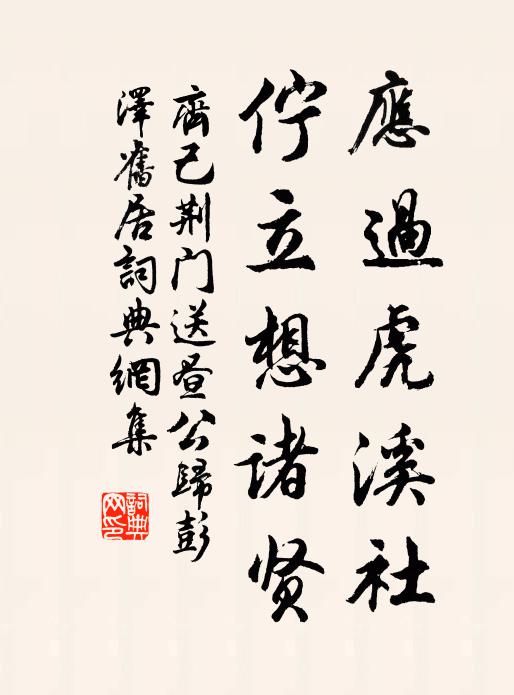 應過虎溪社
佇立想諸贤
齊己荆门送昼公歸彭
澤舊居詞典網集
詞典
网印